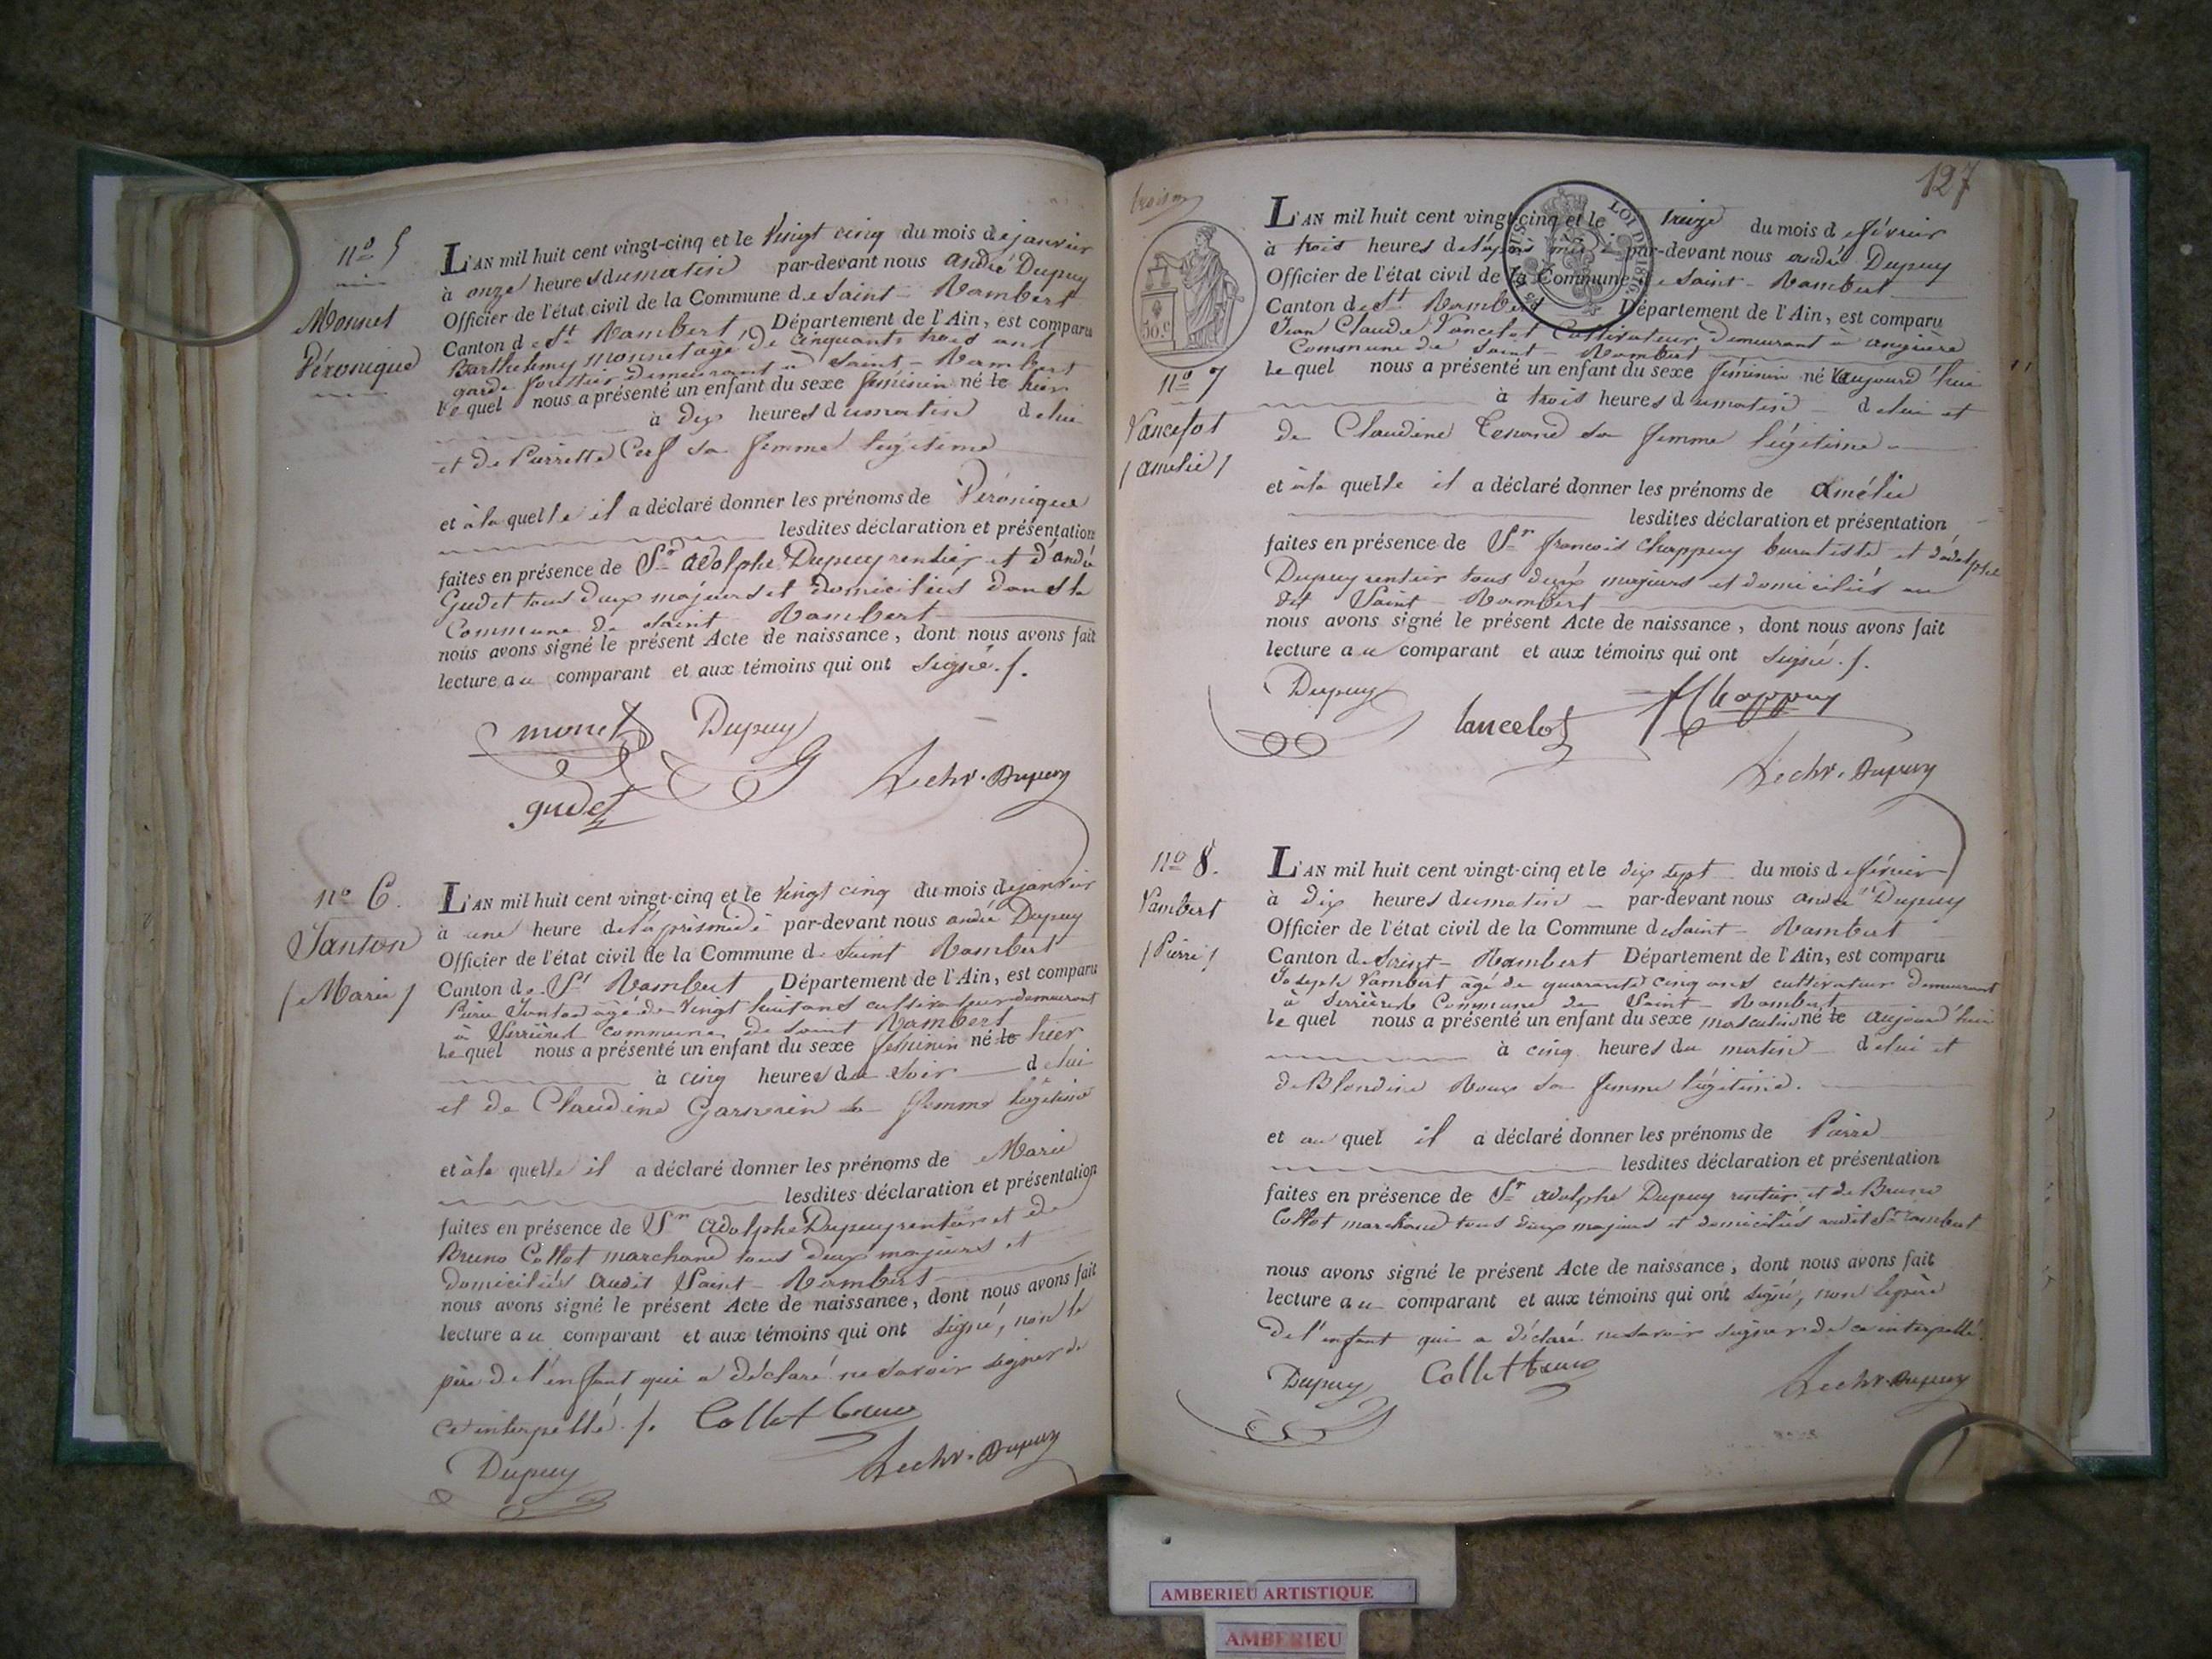 nº 5
Monnet
Véronique
L'AN mil huit cent vingt-cinq et le Vingt cinq du mois de janvier
à onze heures du matin par-devant nous andré Dupuy
Officier de l'état civil de la Commune de Saint-Rambert
Canton de St Rambert Département de l'Ain, est comparu
Barthelemy monnet agé de cinquante trois ans
garde forestier demeurant à Saint-Rambert
Lequel nous a présenté un enfant du sexe féminin né le hier
à dix heures du matin de lui
et de Pierrette Cerf sa femme légitime
et à la quelle il a déclaré donner les prénoms de Véronique
lesdites déclaration et présentation
faites en présence de Sr adolphe Dupuy rentier et d'andré
Gudet tous deux majeurs et domiciliés dans la
Commune de Saint Rambert
nous avons signé le présent Acte de naissance, dont nous avons fait
lecture au comparant et aux témoins qui ont signé.
monet Dupuy
gudet
Dupuy
nº 6.
Tanton
(Marie)
L'AN mil huit cent vingt-cinq et le Vingt cinq du mois de janvier
à une heure de l'après midi par-devant nous andré Dupuy
Officier de l'état civil de la Commune de Saint Rambert
Canton de St Rambert Département de l'Ain, est comparu
Pierre Tanton agé de Vingt huit ans cultivateur demeurant
à Serrières commune de Saint Rambert
Lequel nous a présenté un enfant du sexe féminin né le hier
à cinq heures du soir de lui
et de Claudine Garnerin sa femme légitime
et à la quelle il a déclaré donner les prénoms de Marie
lesdites déclaration et présentation
faites en présence de Sr adolphe Dupuy rentier et de
Bruno Collet marchand tous deux majeurs et
domiciliés audit Saint-Rambert
nous avons signé le présent Acte de naissance, dont nous avons fait
lecture au comparant et aux témoins qui ont signé, non le
père de l'enfant qui a déclaré ne savoir signer de
ce interpellé. Collet bruno
Dupuy
Dupuy
127
LOI DE 1816
50.c
nº 7
Vancelot
(amélie)
L'AN mil huit cent vingt-cinq et le treize du mois de février
à trois heures de l'après midi par-devant nous andré Dupuy
Officier de l'état civil de la Commune de Saint-Rambert
Canton de St Rambert Département de l'Ain, est comparu
Jean Claude Vancelot Cultivateur demeurant à angrière
Commune de Saint-Rambert
Lequel nous a présenté un enfant du sexe féminin né le aujourd'hui
à trois heures du matin de lui et
de Claudine Tenand sa femme légitime
et à la quelle il a déclaré donner les prénoms de amélie
lesdites déclaration et présentation
faites en présence de Sr françois Chappuy et d'adolphe
Dupuy rentier tous deux majeurs et domiciliés au
dit Saint-Rambert
nous avons signé le présent Acte de naissance, dont nous avons fait
lecture au comparant et aux témoins qui ont signé.
Dupuy lancelot Chappuy
Dupuy
nº 8.
Vambert
(Pierre)
L'AN mil huit cent vingt-cinq et le dix sept du mois de février
à dix heures du matin par-devant nous andré Dupuy
Officier de l'état civil de la Commune de Saint-Rambert
Canton de Saint-Rambert Département de l'Ain, est comparu
Joseph Vambert âgé de quarante cinq ans cultivateur demeurant
à Serrières Commune de Saint-Rambert
le quel nous a présenté un enfant du sexe masculin né le aujourd'hui
à cinq heures du matin de lui et
de Blondine Roux sa femme légitime.
et au quel il a déclaré donner les prénoms de Pierre
lesdites déclaration et présentation
faites en présence de Sr adolphe Dupuy rentier et de Bruno
Collet marchand tous deux majeurs et domiciliés audit St rambert
nous avons signé le présent Acte de naissance, dont nous avons fait
lecture au comparant et aux témoins qui ont signé, non le père
de l'enfant qui a déclaré ne savoir signer de ce interpellé.
Dupuy Collet bruno Dupuy
AMBERIEU ARTISTIQUE
AMBERIEU